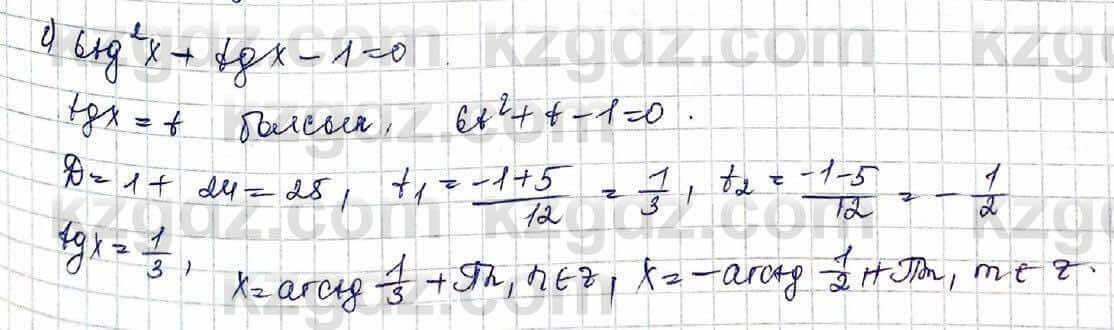 c) 6tg²x + tgx - 1 = 0
tgx = t болсын, 6t² + t - 1 = 0.
D = 1 + 24 = 25, t₁ = \frac{-1+5}{12} = \frac{1}{3}, t₂ = \frac{-1-5}{12} = -\frac{1}{2}
tgx = \frac{1}{3}, x = arctg \frac{1}{3} + πn, n ∈ z, x = -arctg \frac{1}{2} + πm, m ∈ z.
kzgdz.com